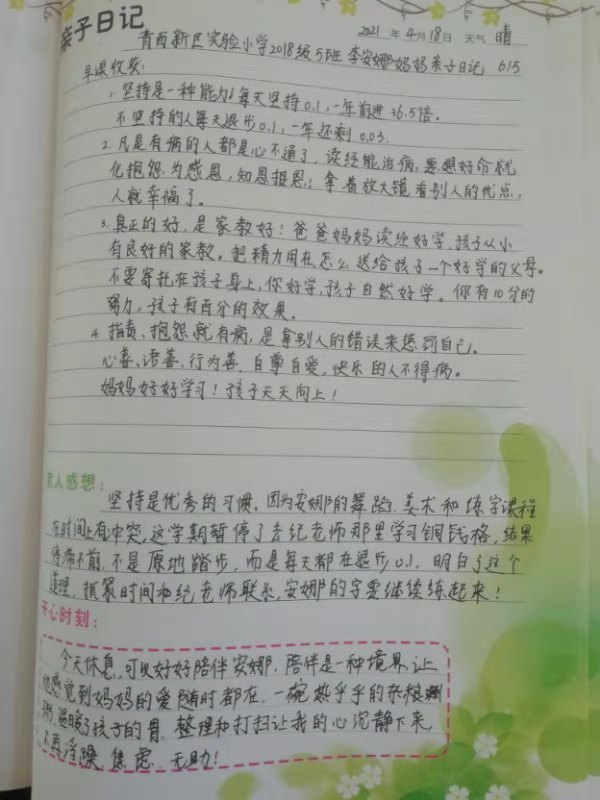 亲子日记
2021年4月18日 天气 晴
青西新区实验小学2018级5班 李安娜妈妈亲子日记 615
早课收获:
1.坚持是一种能力!每天坚持0.1,一年前进36.5倍。
不坚持的人每天退步0.1,一年还剩0.03.
2.凡是有病的人都是心不通了,读经能治病,要想好命就
化抱怨为感恩,知恩报恩;拿着放大镜看别人的优点,
人就幸福了。
3.真正的好,是家教好!爸爸妈妈读经好学,孩子从小
有良好的家教。把精力用在怎么送给孩子一个好学的父母。
不要寄托在孩子身上,你好学,孩子自然好学。你有10分的
努力,孩子有百分的效果。
4.指责、抱怨就有病,是拿别人的错误来惩罚自己。
心善、语善、行为善,自尊自爱,快乐的人不得病。
妈妈好好学习!孩子天天向上!
家人感想:
坚持是优秀的习惯,因为安娜的舞蹈、美术和练字课程
在时间上有冲突,这学期暂停了去纪老师那里学习铜钱格,结果
停滞不前,不是原地踏步,而是每天都在退步0.1,明白了这个
道理,抓紧时间和纪老师联系,安娜的字要继续练起来!
开心时刻:
今天休息,可以好好陪伴安娜,陪伴是一种境界,让
她感觉到妈妈的爱随时都在,一碗热乎乎的杂粮
粥,温暖了孩子的胃,整理和打扫让我的心沉静下来,
不再浮躁、焦虑、无助!